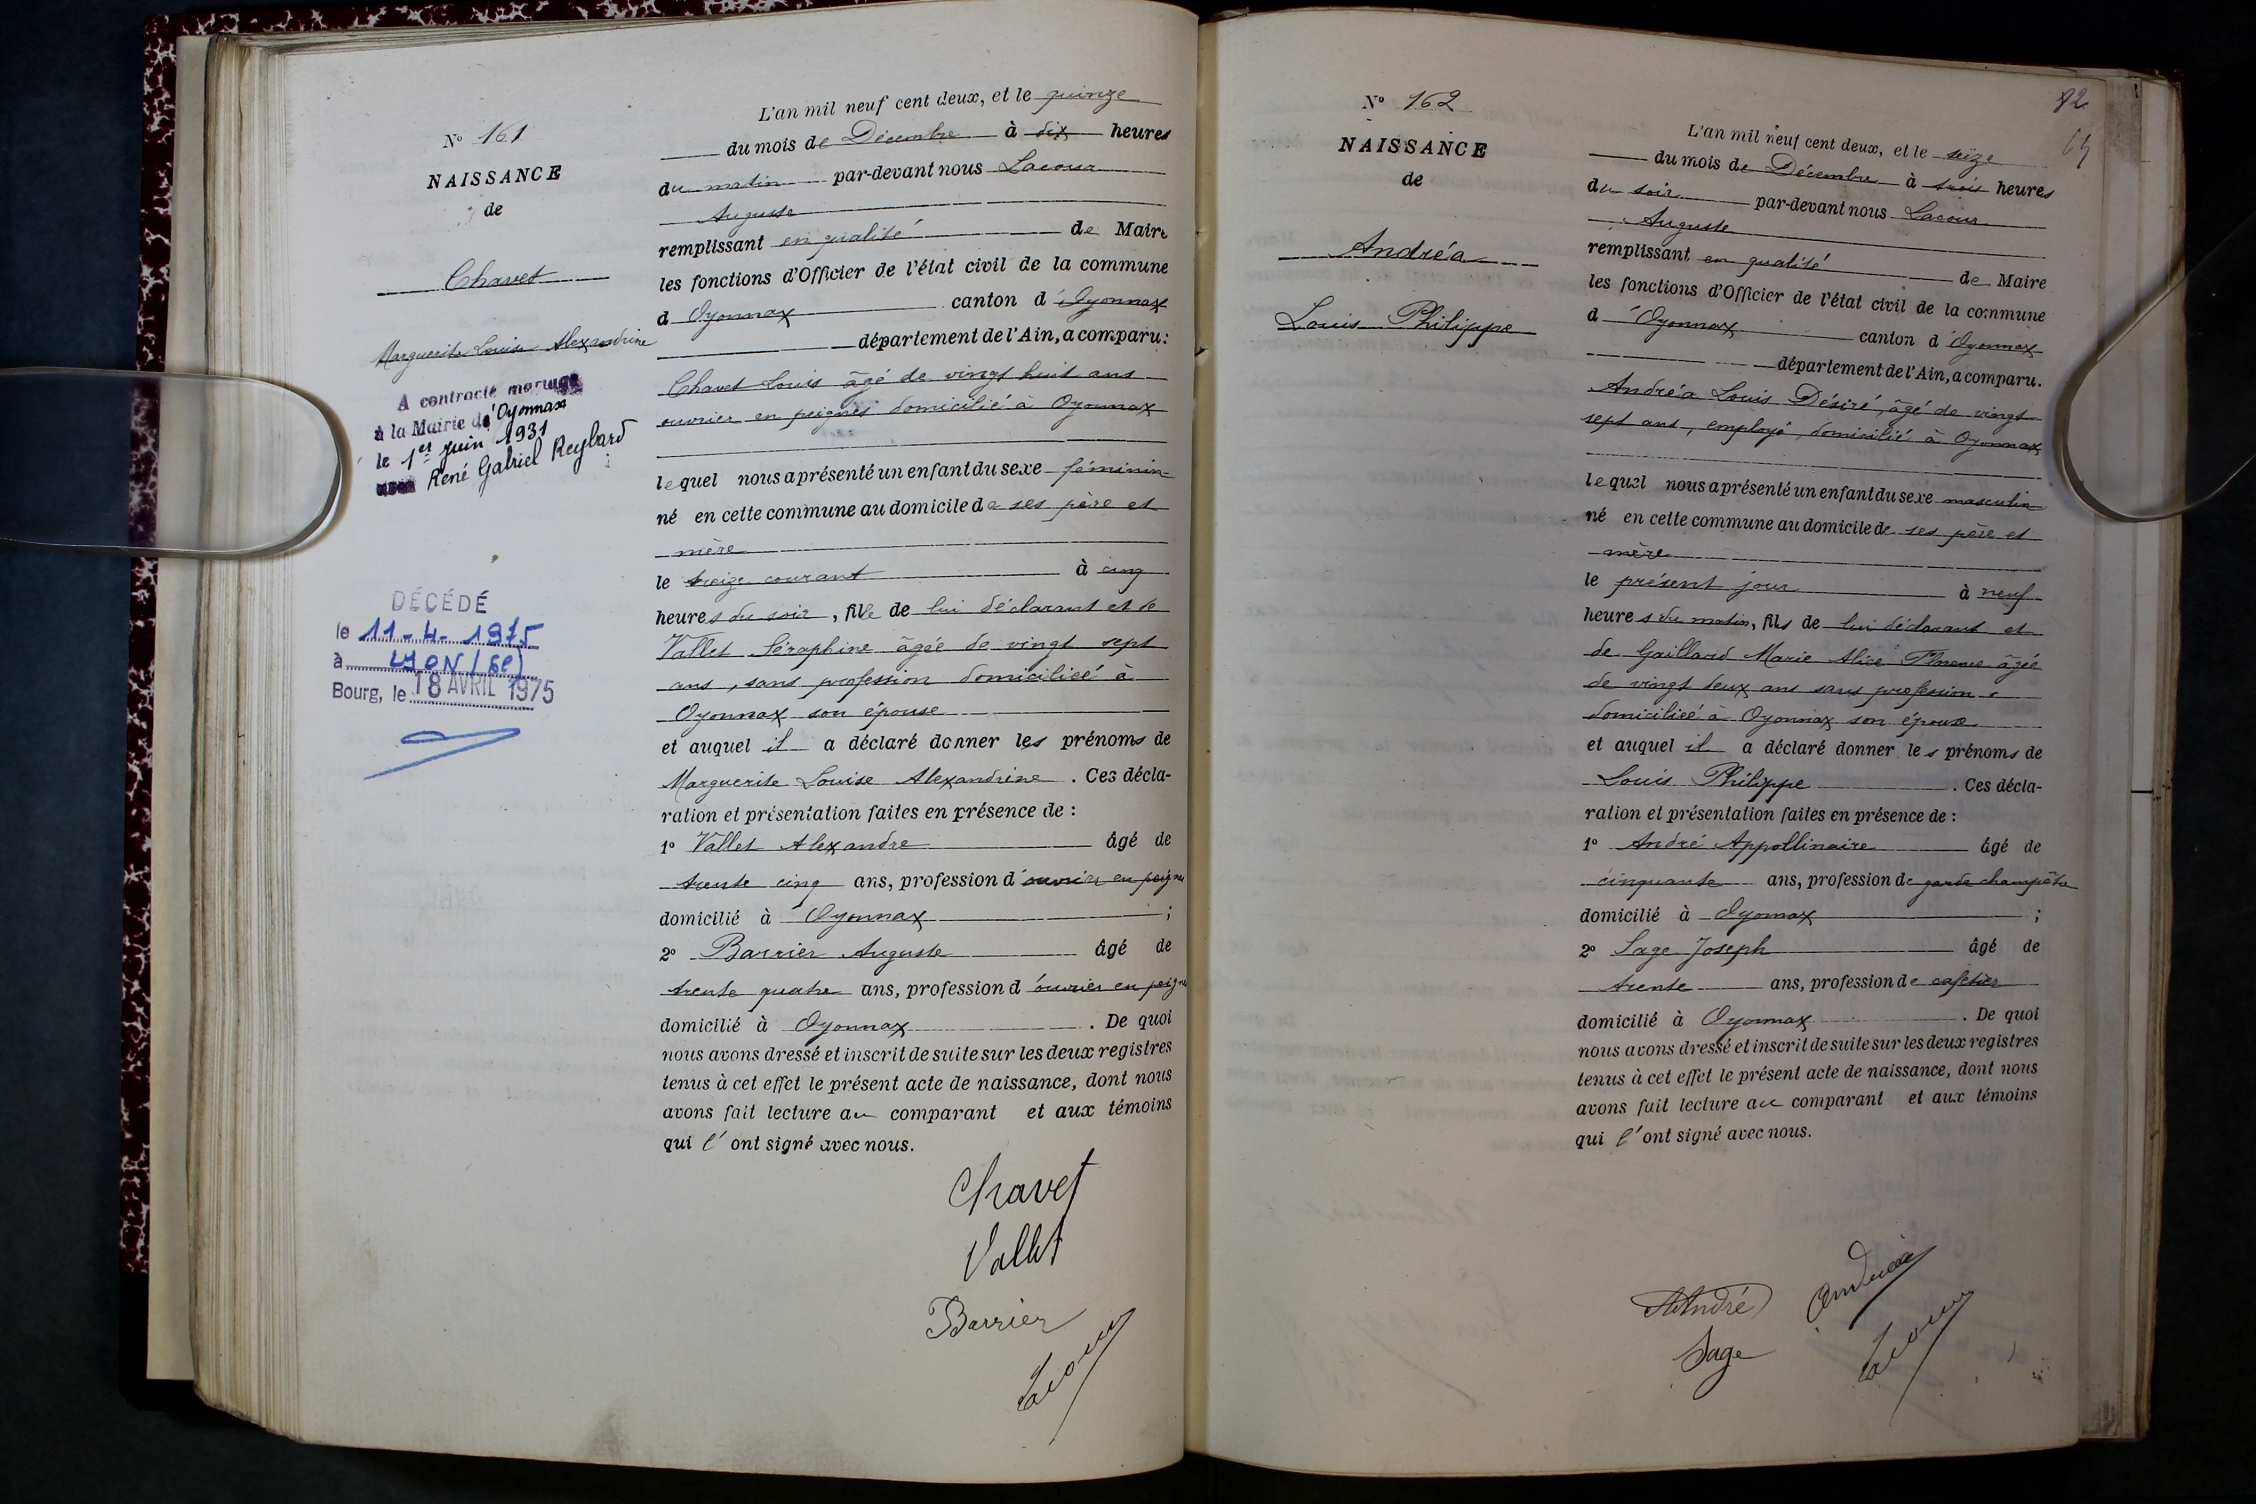 N° 161
NAISSANCE
de
Chavet
Marguerite Louise Alexandrine
A contracté mariage
à la Mairie d'Oyonnax
le 1er juin 1931
avec René Gabriel Reybard
DÉCÉDÉ
le 11-4-1975
à LYON (6e)
Bourg, le 18 AVRIL 1975
L'an mil neuf cent deux, et le quinze
du mois de Décembre à dix heures
du matin par-devant nous Lacour
Auguste
remplissant en qualité de Maire
les fonctions d'Officier de l'état civil de la commune
d Oyonnax canton d'Oyonnax
département de l'Ain, a comparu:
Chavet Louis âgé de vingt huit ans
ouvrier en peignes domicilié à Oyonnax
lequel nous a présenté un enfant du sexe féminin
né en cette commune au domicile de ses père et
mère
le treize courant à cinq
heures du soir, fille de lui déclarant et de
Vallet Séraphine âgée de vingt sept
ans, sans profession domiciliée à
Oyonnax son épouse
et auquel il a déclaré donner les prénoms de
Marguerite Louise Alexandrine. Ces décla-
ration et présentation faites en présence de :
1° Vallet Alexandre âgé de
trente cinq ans, profession d'ouvrier en peignes
domicilié à Oyonnax ;
2° Barrier Auguste âgé de
trente quatre ans, profession d'ouvrier en peigne
domicilié à Oyonnax. De quoi
nous avons dressé et inscrit de suite sur les deux registres
tenus à cet effet le présent acte de naissance, dont nous
avons fait lecture au comparant et aux témoins
qui l'ont signé avec nous.
Chavet
Vallet
Barrier
Lacour
92
N° 162
NAISSANCE
de
Andréa
Louis Philippe
L'an mil neuf cent deux, et le seize
du mois de Décembre à trois heures
du soir par-devant nous Lacour
Auguste
remplissant en qualité de Maire
les fonctions d'Officier de l'état civil de la commune
d'Oyonnax canton d'Oyonnax
département de l'Ain, a comparu.
Andréa Louis Désiré, âgé de vingt
sept ans, employé, domicilié à Oyonnax
lequel nous a présenté un enfant du sexe masculin
né en cette commune au domicile de ses père et
mère
le présent jour à neuf
heures du matin, fils de lui déclarant et
de Gaillard Marie Alice Florence âgée
de vingt deux ans sans profession
domiciliée à Oyonnax son épouse
et auquel il a déclaré donner les prénoms de
Louis Philippe. Ces décla-
ration et présentation faites en présence de :
1° André Appollinaire âgé de
cinquante ans, profession de garde champêtre
domicilié à Oyonnax ;
2° Sage Joseph âgé de
trente ans, profession de cafetier
domicilié à Oyonnax. De quoi
nous avons dressé et inscrit de suite sur les deux registres
tenus à cet effet le présent acte de naissance, dont nous
avons fait lecture au comparant et aux témoins
qui l'ont signé avec nous.
André Andréa
Sage Lacour